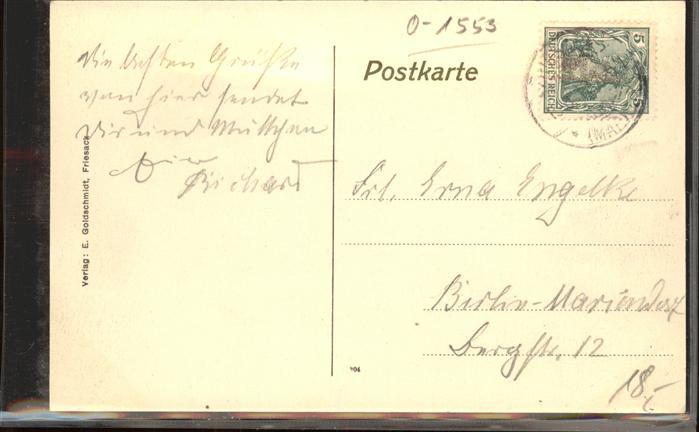 0-1553
Postkarte
5
DEUTSCHES REICH
(MARK)
Die besten Grüße
von hier sendet
Dir und Muttchen
Dein
Richard
Frl. Erna Engelke
Berlin-Mariendorf
Bergstr. 12
Verlag: E. Goldschmidt, Friesack
904
18,-